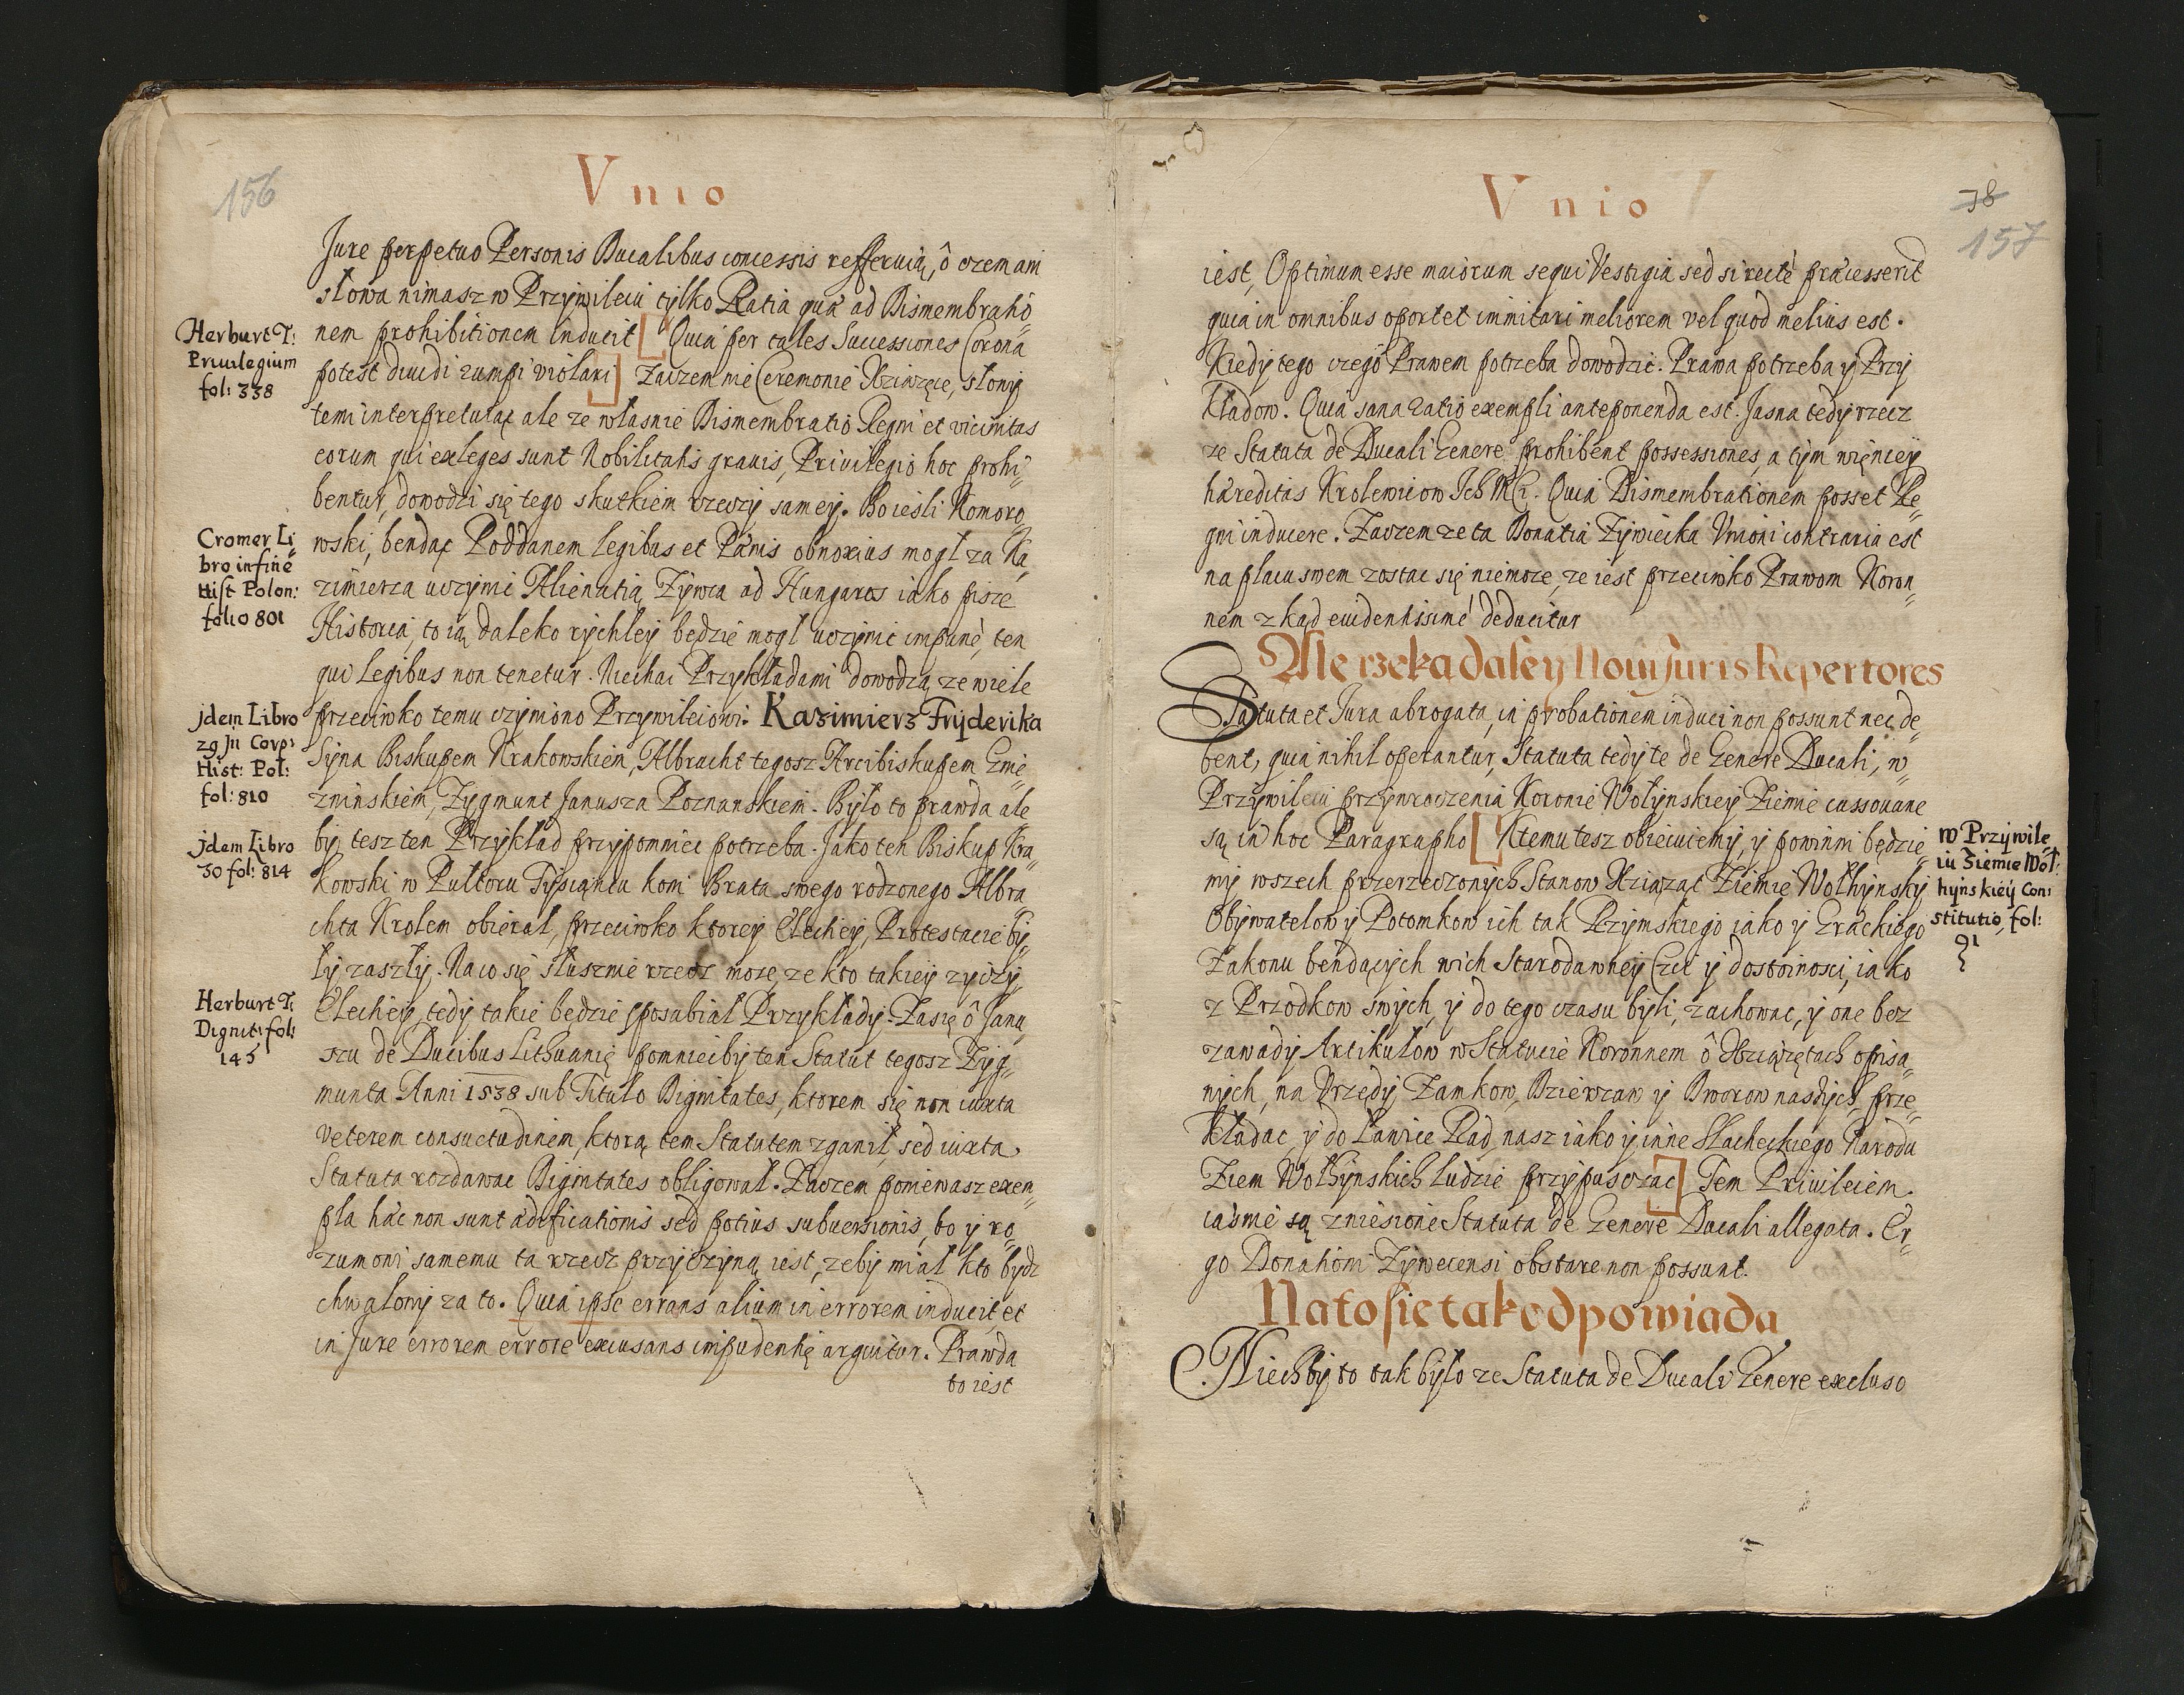 156
Vnio
Jure perpetuo Personis Ducalibus concessis refferuią, ô czem ani
słowa nimasz w Przywileiu tylko Ratia quæ ad Dismembratio„
nem prohibitionem inducit [ Quia per tales Successiones Corona
potest diuidi rumpi violari ] Zaczem nie Ceremonie Xziązęce, słowy
temi interpretuiąc ale ze własnie Dismembratio Regni et vicinitas
eorum qui exleges sunt Nobilitatis grauis, Priuilegio hoc prohi„
bentur, dowodzi się tego skutkiem rzeczy samey. Bo iesli Komoro„
wski, bendąc Poddanem legibus et Pænis obnoxius mogł za Ka„
zimierza uczynic Alienatią Zywca ad Hungaros iako pisze
Historia, to ią daleko rychley będzie mogł uczynic impunè, ten
qui legibus non tenetur. Niechai Przykładami dowodzą ze wiele
przeciwko temu czyniono Przywileiowi. Kazimierz Fryderika
Syna Biskupem Krakowskiem, Albracht tegosz Arcibiskupem Gnie„
zninskiem, Zygmunt Janusza Poznanskiem. Było to prawda ale
by tesz ten Przykład przypomniec potrzeba. Jako ten Biskup Kra„
kowski w Pułtoru Tysiąntu koni Brata swego rodzonego Albra
chta Krolem obierał, przeciwko ktorey Elechey, Protestacie by„
ły zaszły. Na co się słusznie rzecz moze, ze kto takiey zyczy
Elechey, tedy takie bedzie sposabiał Przykłady. Zasię ô Janu
szu de Ducibus Lithuanię pomniecby ten Statut tegosz Zyg„
munta Anni 1538 sub Titulo Dignitates, ktorem się non iuxta
veterem consuetudinem, ktorą tem Statutem zganił, sed iuxta
Statuta rozdawac Dignitates obligował. Zaczem poniewasz exem„
pla hæc non sunt ædificationis sed potius subuersionis, bo y ro„
zumoni samemu ta rzecz przyczyną iest, zeby miał kto bydz
chwalony za to. Quia ipse errans alium in errorem inducit, et
in Jure errorem errore excusans impudentię arguitur. Prawda
to iest
Herburt T:
Priuilegium
fol: 338
Cromer Li„
bro in fine
Hist Polon:
folio 801
jdem Libro
29 Jn Corp:
Hist: Pol:
fol: 810
jdem Libro
30 fol: 814
Herburt T:
Dignit: fol:
145
Vnio
38
157
iest, Optimum esse maiorum sequi Vestigia sed si rectè præcesserit
quia in omnibus oportet immitari meliorem vel quod melius est.
Kiedy tego czegô Prawem potrzeba dowodzic. Prawa potrzeba y Przy
kładow. Quia sana ratio exempli anteponenda est. Jasna tedy rzecz
ze Statuta de Ducali Genere prohibent possessiones, a tym więncey
hæreditas Krolewicow Ich Mci. Quia Dismembrationem posset Re„
gni inducere. Zaczem ze ta Donatia Zywiecka Vnioni contraria est
na placu swem zostac się niemoze, ze iest przeciwko Prawom Koron„
nem z kąd euidentissimé deducitur
Ale rzeka daley Noui Juris Repertores
Statuta et Jura abrogata, in probationem induci non possunt nec de„
bent, quia nihil operantur, Statuta tedy te de Genere Ducali, w„
Przywileiu przywroczenia Koronie Wołynskiey Ziemie cassouane
są in hoc Paragrapho [ Ktemu tesz obiecuiemy, y powinni będzie„
my wszech przerzeczonych Stanow Xziąząc Ziemie Wołhynsky
Obywatelow y Potomkow ich tak Rzymskiego iako y Grackiego
Zakonu bendących wich Starodawney Czci y dostoinosci, iako
z Przodkow swych, y do tego czasu byli, zachowac, y one bez
zawady Artikułow w Statucie Koronnem ô Xziązętach opisa„
nych, na Vrzędy Zamkow, Dzierzaw y Dworow naszych, prze„
kładac y do Lawice Rad nasz iako y inne Slacheckiego Narodu
Ziem Wołhynskich ludzie przypuszac ] Tem Priuileiem
iasnie są zniesione Statuta de Genere Ducali allegata. Er„
go Donationi Zywecensi obstare non possunt.
Na to sie tak odpowiada
Niechby to tak było ze Statuta de Ducali Genere excluso
w Przywile„
iu Ziemie Woł„
hynskiey Con:
stitutio, fol:
91